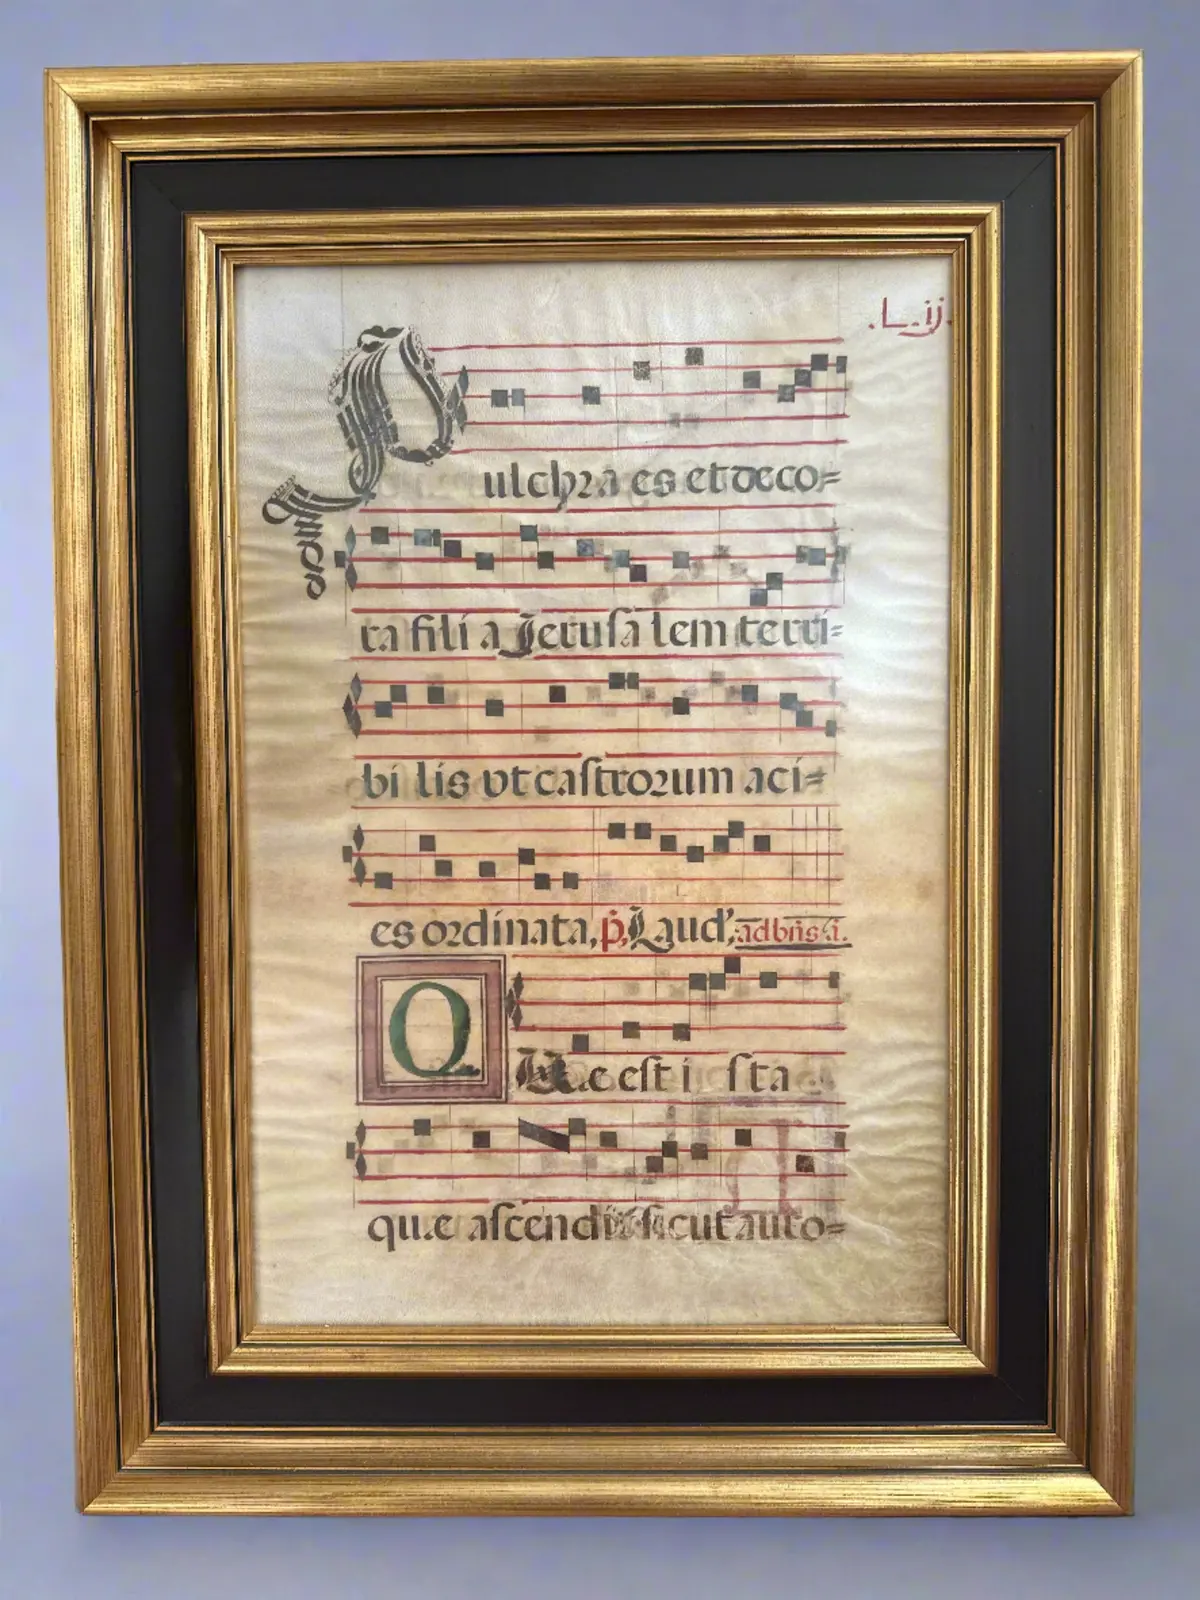 .L.ij.
Pulchra es et deco=
ra fili a Jerusa lem terri=
bi lis ut castrorum aci=
es ordinata, p̄, Laud', ad bn̄s a.
Quae est i sta
quae ascendit sicut auro=